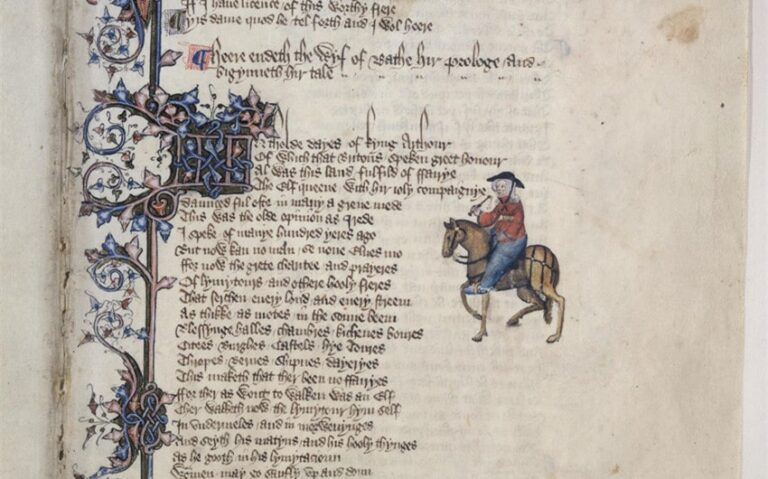 If I haue licence of this worthy frere
Yis dame quod he tel forth and I wol heere
Heere endeth the Wyf of Bathe hir prologe and
bigynneth hir tale
In tholde dayes of kyng Arthour
Of which that Britons speken greet honour
Al was this land fulfild of ffairye
The Elf queene with hir ioly compaignye
Daunced ful ofte in many a grene mede
This was the olde opinion as I rede
I speke of manye hundred yeres ago
But now kan no man se none Elues mo
ffor now the grete charitee and prayeres
Of lymytours and othere hooly freres
That serchen euery lond and euery streem
As thikke as motes in the sonne beem
Blessynge halles chambres kichenes boures
Citees Burghes Castels hye Toures
Thropes Bernes Shipnes dayeryes
This maketh that ther been no ffairyes
ffor ther as wont to walken was an Elf
Ther walketh now the lymytour hym self
In vndermeles and in morwenynges
And seyth his matyns and his hooly thynges
As he gooth in his lymytacioun
Wommen may go saufly vp and doun